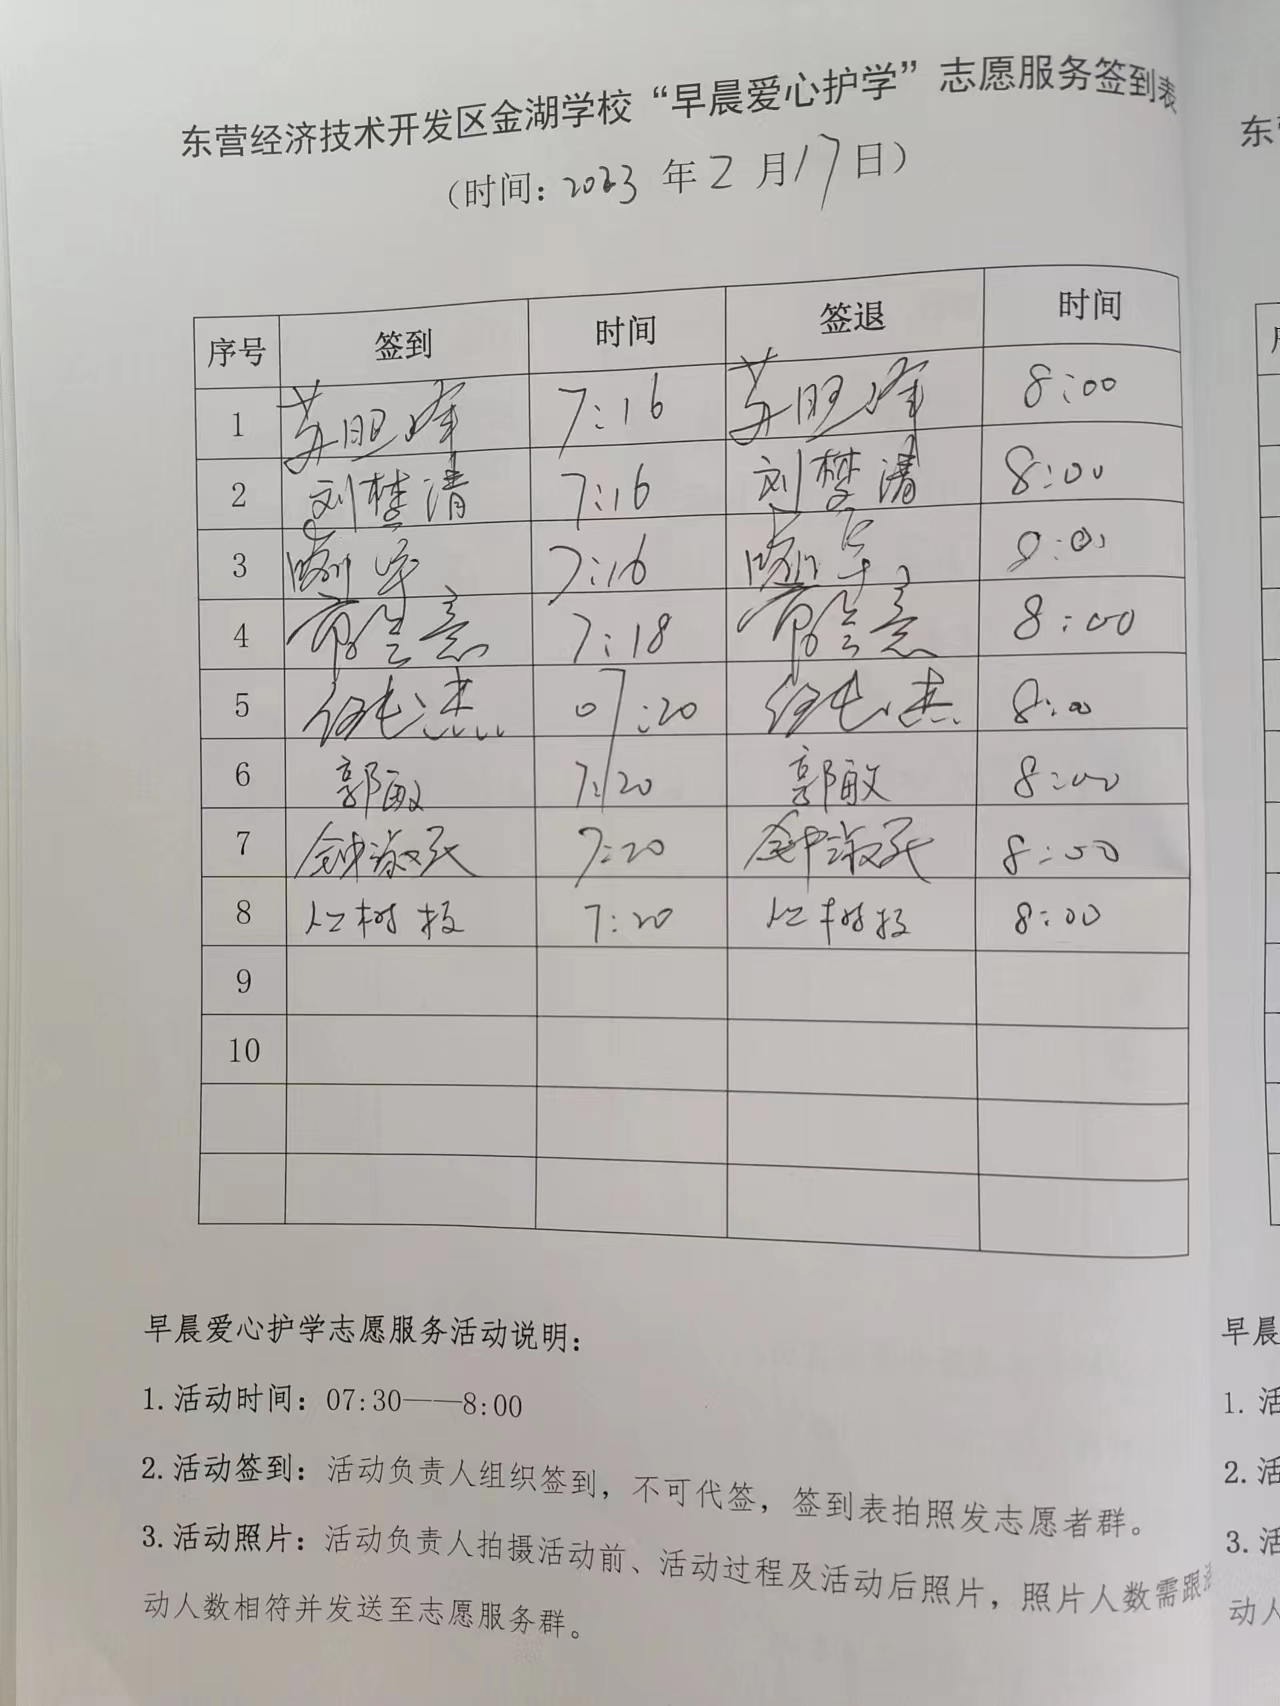 东营经济技术开发区金湖学校“早晨爱心护学”志愿服务签到表
（时间：2023 年 2 月 17 日）
序号 签到 时间 签退 时间
1 7:16 8:00
2 刘梦清 7:16 刘梦清 8:00
3 7:16
4 7:18 8:00
5 07:20 8:00
6 郭敏 7:20 郭敏 8:00
7 7:20 8:00
8 7:20 8:00
9
10
早晨爱心护学志愿服务活动说明：
1.活动时间：07:30——8:00
2.活动签到：活动负责人组织签到，不可代签，签到表拍照发志愿者群。
3.活动照片：活动负责人拍摄活动前、活动过程及活动后照片，照片人数需跟
动人数相符并发送至志愿服务群。
东
早晨
1.活
2.活
3.活
动人